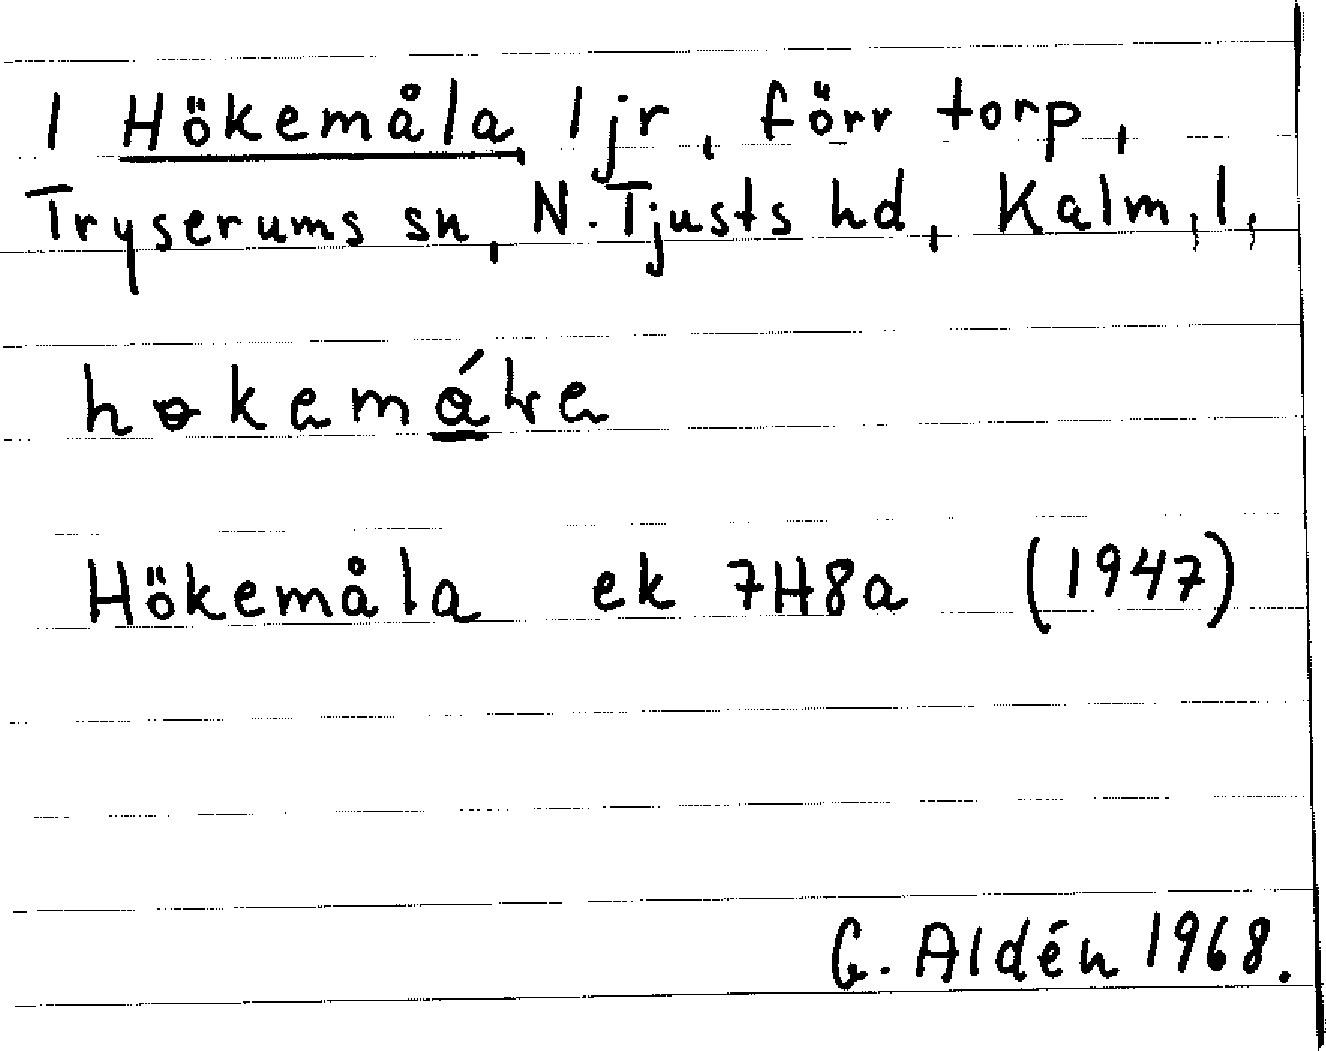 1 Hökemåla, ljr, förr torp,
Tryserums sn, N. Tjusts hd, Kalm, l,
Hökemåla ek 7H8a (1947)
G. Aldén 1968.